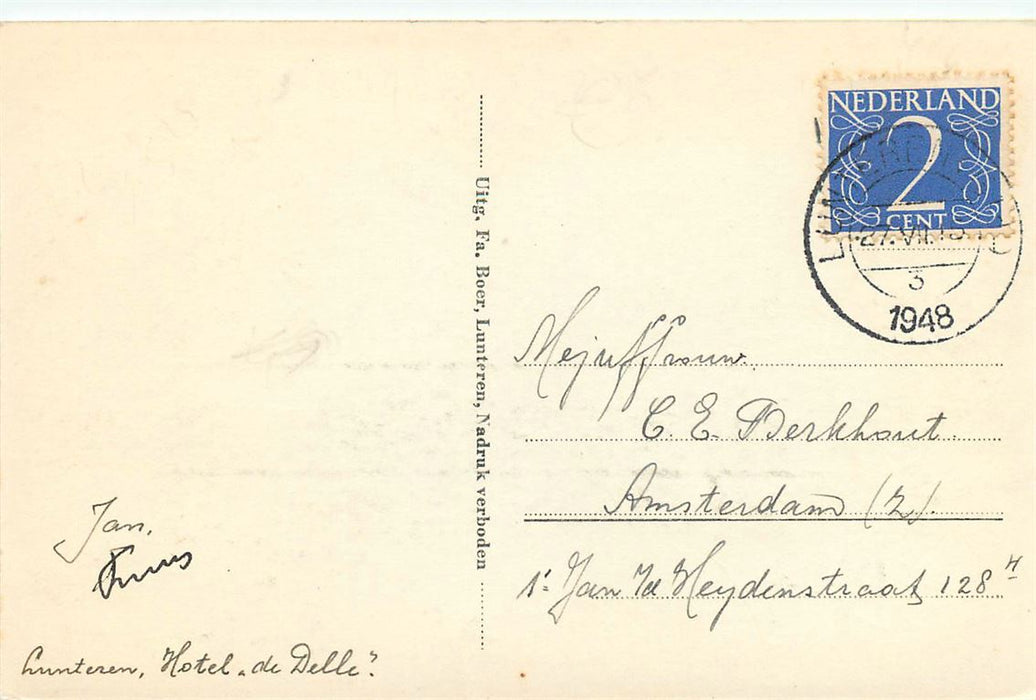 NEDERLAND
2
CENT
LUNTEREN
27.VII.
3
1948
Uitg. Fa. Boer, Lunteren, Nadruk verboden
Mejuffrouw.
C. E. Berkhout.
Amsterdam (Z).
1e Jan v/d Heydenstraat 128 H
Jan,
Lunteren, Hotel „de Delle".